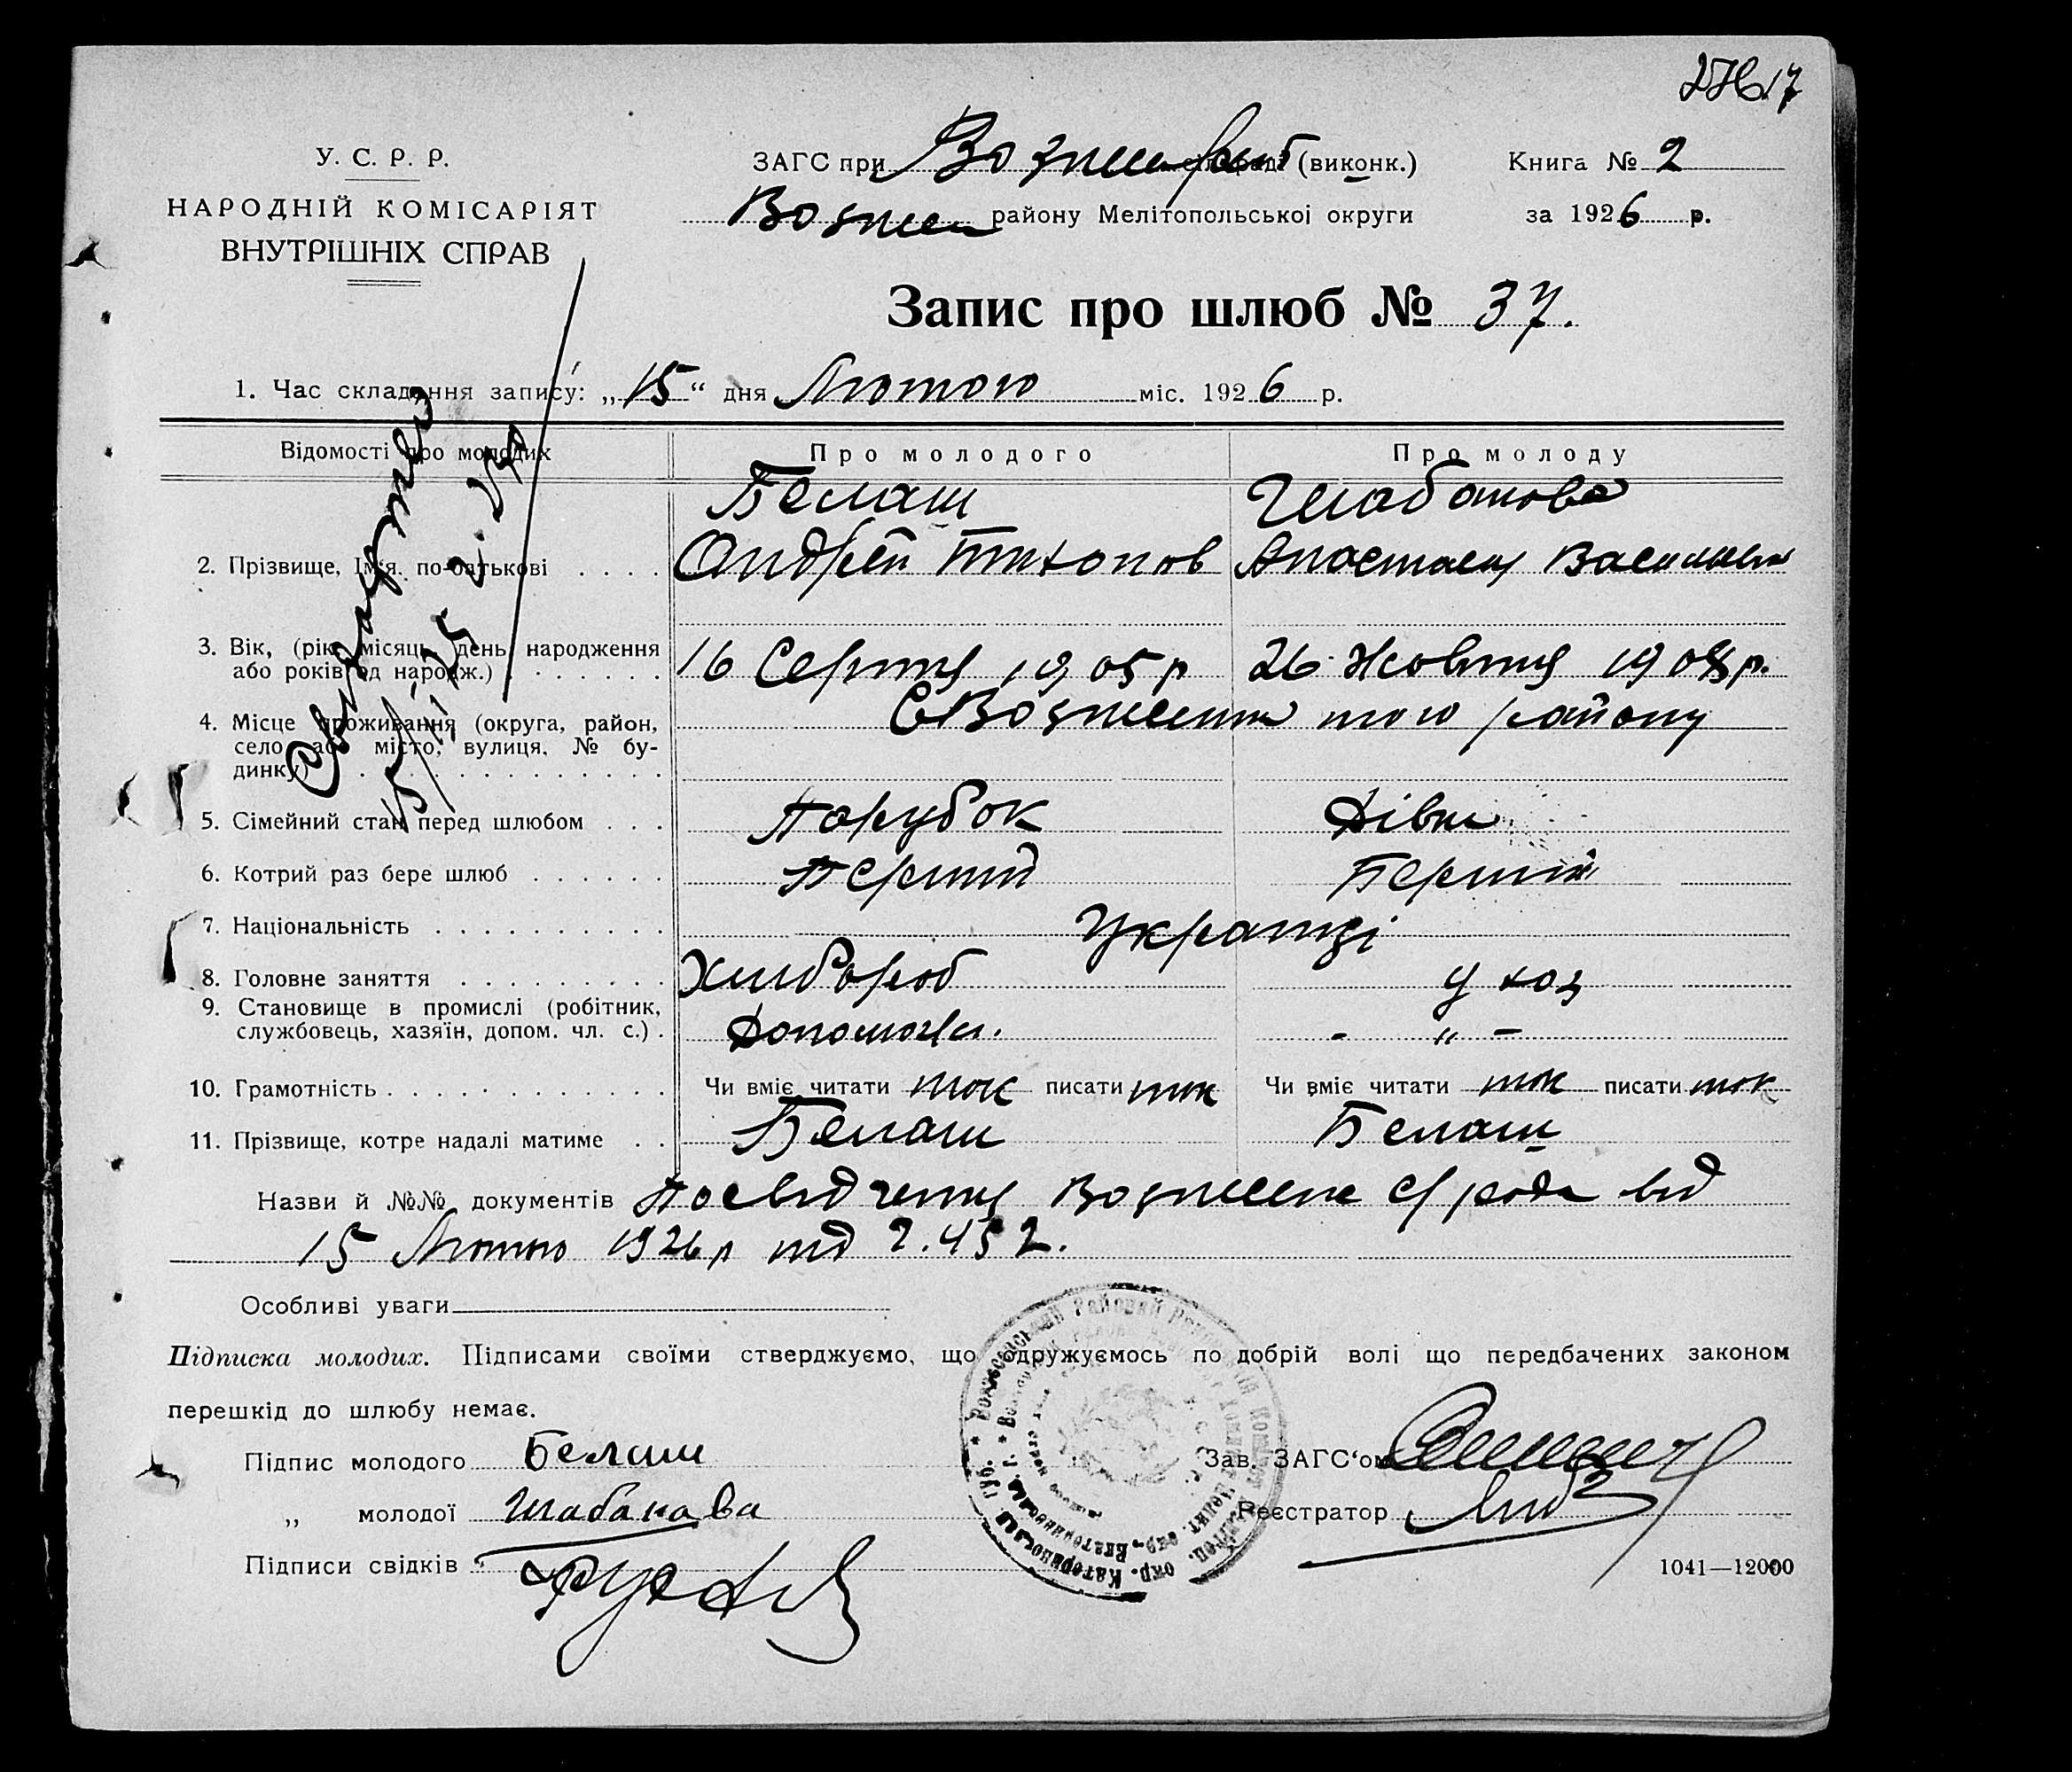 17
У. С. Р. Р.
НАРОДНІЙ КОМІСАРІЯТ
ВНУТРІШНІХ СПРАВ
ЗАГС при (виконк.)
Книга № 2
Вознесен району Мелітопольської округи
за 1926 р.
Запис про шлюб № 37.
1. Час складання запису: „15“ дня Лютого міс. 1926 р.
Відомості про молодих
Про молодого
Про молоду
Белаш
Шабанова
2. Прізвище, Ім'я, по-батькові . . . . Андрей Тихонов Анастасия Васильевн
3. Вік, (рік, місяць, день народження
або років од народж.) . . . . . . . 16 Серпня 1905 р 26 Жовтня 190 р.
4. Місце проживання (округа, район,
село або місто, вулиця, № бу-
динку) . . . . . . . . . . . . .
С Вознесенка того району
5. Сімейний стан перед шлюбом . . . Парубок Дівка
6. Котрий раз бере шлюб . . . . . . Перший Перший
7. Національність . . . . . . . . . . Українці
8. Головне заняття . . . . . . . . . Хлібороб у хоз
9. Становище в промислі (робітник,
службовець, хазяїн, допом. чл. с.) . Допомога. - „ -
10. Грамотність . . . . . . . . . . . Чи вміє читати так писати так Чи вміє читати так писати так
11. Прізвище, котре надалі матиме . . Белаш Белаш
Назви й №№ документів Посвідчення Вознесенк с/ради від
15 Лютого 1926 р під 2.452.
Особливі уваги
Підписка молодих. Підписами своїми стверджуємо, що одружуємось по добрій волі що передбачених законом
перешкід до шлюбу немає.
Підпис молодого Белаш
Зав. ЗАГС'ом
„ молодої Шабанава
Реєстратор
Підписи свідків
1041—12000